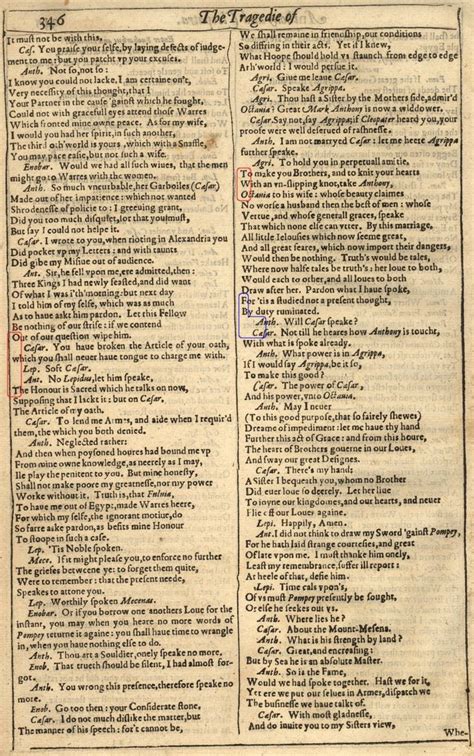 346
The Tragedie of
It must not be with this.
Cæs. You praise your selfe, by laying defects of iudge-
ment to me: but you patcht vp your excuses.
Anth. Not so, not so:
I know you could not lacke, I am certaine on't,
Very necessity of this thought, that I
Your Partner in the cause 'gainst which he fought,
Could not with gracefull eyes attend those Warres
Which fronted mine owne peace. As for my wife,
I would you had her spirit, in such another,
The third oth'world is yours, which with a Snaffle,
You may pace easie, but not such a wife.
Enobar. Would we had all such wiues, that the men
might go to Warres with the women.
Anth. So much vncurbable, her Garboiles (Cæsar)
Made out of her impatience: which not wanted
Shrodenesse of policie to: I greeuing grant,
Did you too much disquiet, for that you must,
But say I could not helpe it.
Cæsar. I wrote to you, when rioting in Alexandria you
Did pocket vp my Letters: and with taunts
Did gibe my Missiue out of audience.
Ant. Sir, he fell vpon me, ere admitted, then:
Three Kings I had newly feasted, and did want
Of what I was i'th'morning: but next day
I told him of my selfe, which was as much
As to haue askt him pardon. Let this Fellow
Be nothing of our strife: if we contend
Out of our question wipe him.
Cæsar. You haue broken the Article of your oath,
which you shall neuer haue tongue to charge me with.
Lep. Soft Cæsar.
Ant. No Lepidus, let him speake,
The Honour is Sacred which he talks on now,
Supposing that I lackt it: but on Cæsar,
The Article of my oath.
Cæsar. To lend me Armes, and aide when I requir'd
them, the which you both denied.
Anth. Neglected rather:
And then when poysoned houres had bound me vp
From mine owne knowledge, as neerely as I may,
Ile play the penitent to you. But mine honesty,
Shall not make poore my greatnesse, nor my power
Worke without it. Truth is, that Fuluia,
To haue me out of Egypt, made Warres heere,
For which my selfe, the ignorant motiue, do
So farre aske pardon, as befits mine Honour
To stoope in such a case.
Lep. 'Tis Noble spoken.
Mece. If it might please you, to enforce no further
The griefes betweene ye: to forget them quite,
Were to remember: that the present neede,
Speakes to attone you.
Lep. Worthily spoken Mecenas.
Enobar. Or if you borrow one anothers Loue for the
instant, you may when you heare no more words of
Pompey returne it againe: you shall haue time to wrangle
in, when you haue nothing else to do.
Anth. Thou art a Souldier, onely speake no more.
Enob. That trueth should be silent, I had almost for-
got.
Anth. You wrong this presence, therefore speake no
more.
Enob. Go too then: your Considerate stone.
Cæsar. I do not much dislike the matter, but
The manner of his speech: for't cannot be,
We shall remaine in friendship, our conditions
So diffring in their acts. Yet if I knew,
What Hoope should hold vs staunch from edge to edge
Ath'world: I would persue it.
Agri. Giue me leaue Cæsar.
Cæsar. Speake Agrippa.
Agri. Thou hast a Sister by the Mothers side, admir'd
Octauia? Great Mark Anthony is now a widdower.
Cæsar. Say not, say Agrippa; if Cleopater heard you, your
proofe were well deserued of rashnesse.
Anth. I am not marryed Cæsar: let me heere Agrippa
further speake.
Agri. To hold you in perpetuall amitie,
To make you Brothers, and to knit your hearts
With an vn-slipping knot, take Anthony,
Octauia to his wife: whose beauty claimes
No worse a husband then the best of men: whose
Vertue, and whose generall graces, speake
That which none else can vtter. By this marriage,
All little Ielousies which now seeme great,
And all great feares, which now import their dangers,
Would then be nothing. Truth's would be tales,
Where now halfe tales be truth's: her loue to both,
Would each to other, and all loues to both
Draw after her. Pardon what I haue spoke,
For 'tis a studied not a present thought,
By duty ruminated.
Anth. Will Cæsar speake?
Cæsar. Not till he heares how Anthony is toucht,
With what is spoke already.
Anth. What power is in Agrippa,
If I would say Agrippa, be it so,
To make this good?
Cæsar. The power of Cæsar,
And his power, vnto Octauia.
Anth. May I neuer
(To this good purpose, that so fairely shewes)
Dreame of impediment: let me haue thy hand
Further this act of Grace: and from this houre,
The heart of Brothers gouerne in our Loues,
And sway our great Designes.
Cæsar. There's my hand:
A Sister I bequeath you, whom no Brother
Did euer loue so deerely. Let her liue
To ioyne our kingdomes, and our hearts, and neuer
Flie off our Loues againe.
Lepi. Happily, Amen.
Ant. I did not think to draw my Sword 'gainst Pompey,
For he hath laid strange courtesies, and great
Of late vpon me. I must thanke him onely,
Least my remembrance, suffer ill report:
At heele of that, defie him.
Lepi. Time cals vpon's,
Of vs must Pompey presently be sought,
Or else he seekes out vs.
Anth. Where lies he?
Cæsar. About the Mount-Mesena.
Anth. What is his strength by land?
Cæsar. Great, and encreasing:
But by Sea he is an absolute Master.
Anth. So is the Fame,
Would we had spoke together. Hast we for it,
Yet ere we put our selues in Armes, dispatch we
The businesse we haue talkt of.
Cæsar. With most gladnesse,
And do inuite you to my Sisters view,
Whe-